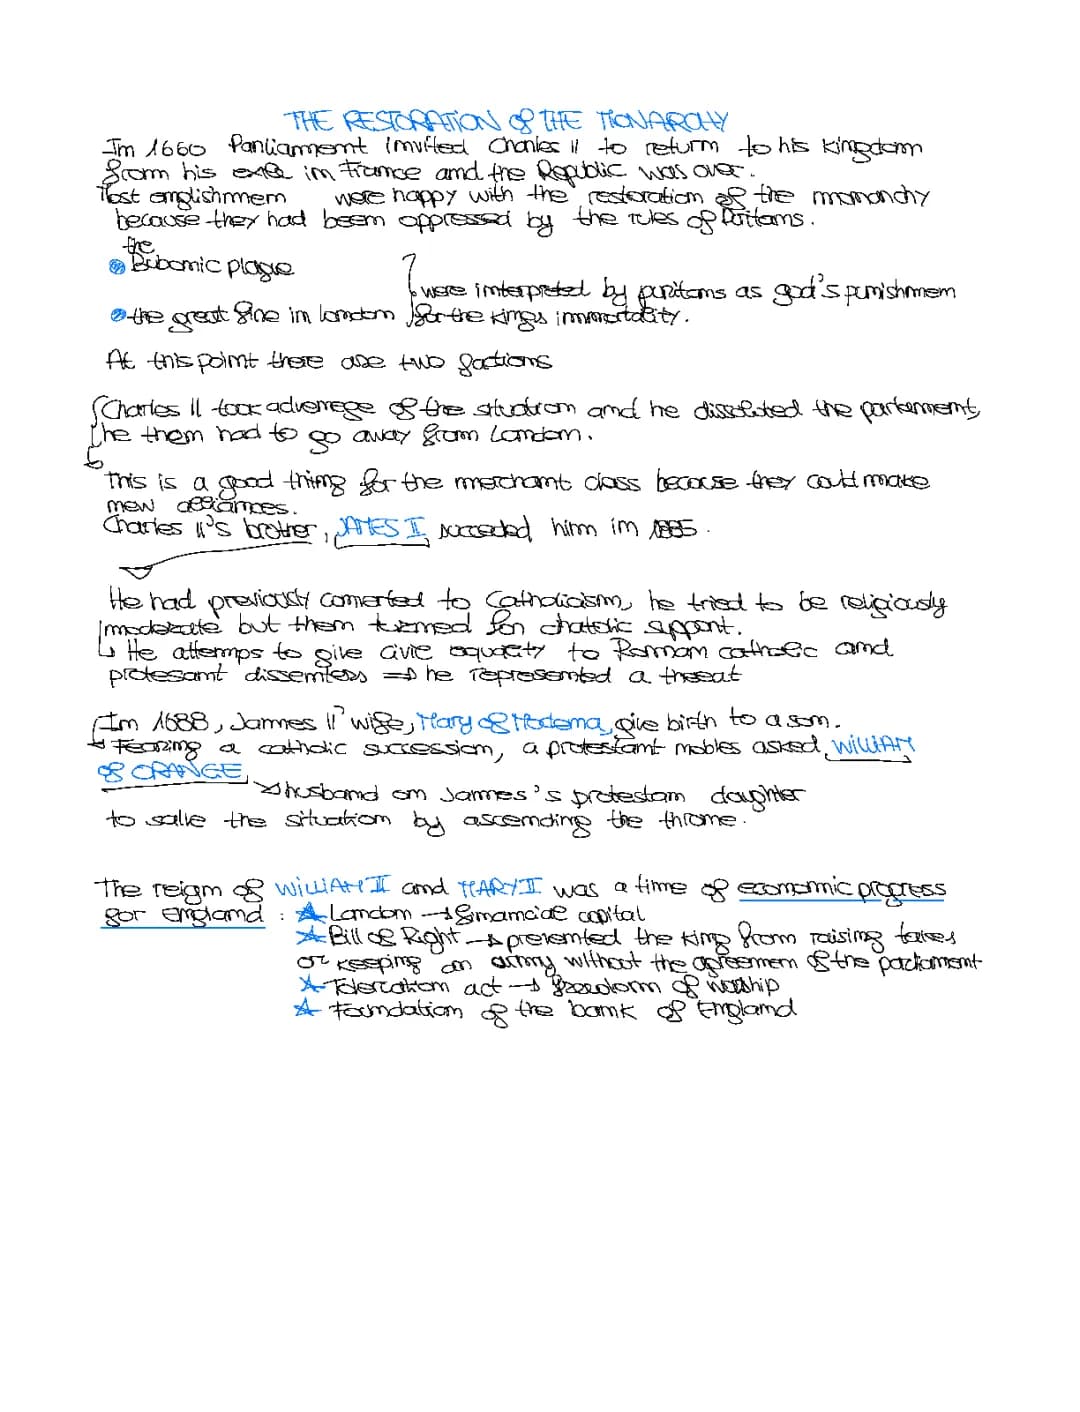 THE RESTORATION of THE MONARCHY
In 1660 Parliament invited Charles II to return to his kingdom
from his exile in France and the Republic was over.
Most englishmen were happy with the restoration of the monarchy
because they had been oppressed by the rules of Puritans.
the
Bubonic plague
were interpreted by puritans as god's punishmen
the great fire in london for the kings immortality.
At this point there are two factions
Charles II took advantage of the situation and he dissoluted the parlement,
he then had to go away from London.
This is a good thing for the merchant class because they could make
new alliances.
Charles II's brother, JAMES II succeeded him in 1685.
He had previously converted to Catholicism, he tried to be religiously
moderate but then turned for chatolic support.
He attemps to give civic equality to Roman catholic and
protesant dissenters => he represented a threat
In 1688, James II' wife, Mary of Modena, give birth to a son.
Fearing a catholic succession, a protestant nobles asked WILLIAM
of ORANGE
husband on James's protestan daughter
to salve the situation by ascending the throne.
The reign of WILLIAM II and MARY II was a time of economic progress
for England : London → financial capital
Bill of Right → prevented the king from raising taxes
or keeping an army without the agreemen of the parliament
Toleration act → freedom of worship
Foundation of the bank of England